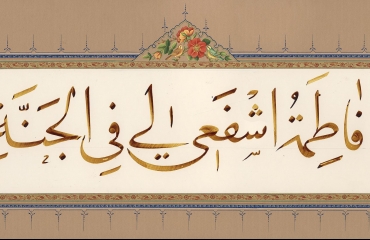 فَاطِمَةُ اشْفَعِي لِي فِي الْجَنَّةِ